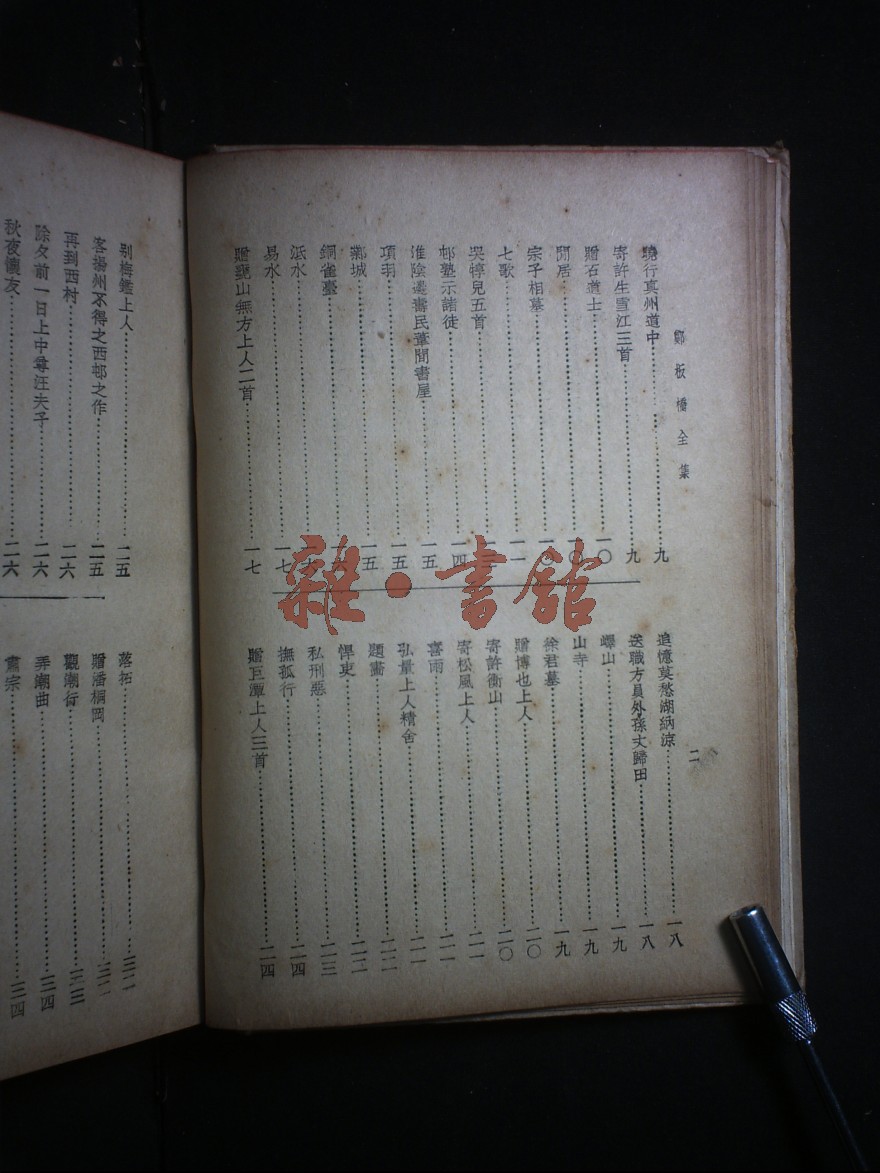 鄭板橋全集
二
曉行真州道中……九
寄許生雪江三首……九
贈石道士……一〇
閒居……一〇
宗子相墓……一〇
七歌……一一
哭犉兒五首……一三
邨塾示諸徒……一四
淮陰邊壽民葦間書屋……一五
項羽……一五
鄴城……一五
銅雀臺……一六
泜水……一六
易水……一七
贈甕山無方上人二首……一七
追憶莫愁湖納涼……一八
送職方員外孫丈歸田……一八
嶧山……一九
山寺……一九
徐君墓……一九
贈博也上人……二〇
寄許衡山……二〇
寄松風上人……二一
喜雨……二一
弘量上人精舍……二一
題畫……二二
悍吏……二二
私刑惡……二三
撫孤行……二四
贈巨潭上人三首……二四
别梅鑑上人……二五
客揚州不得之西邨之作……二五
再到西村……二六
除夕前一日上中尊汪夫子……二六
秋夜懷友……二六
落拓
贈潘桐岡
觀潮行……三三
弄潮曲……三四
肅宗……三四
雜·書館